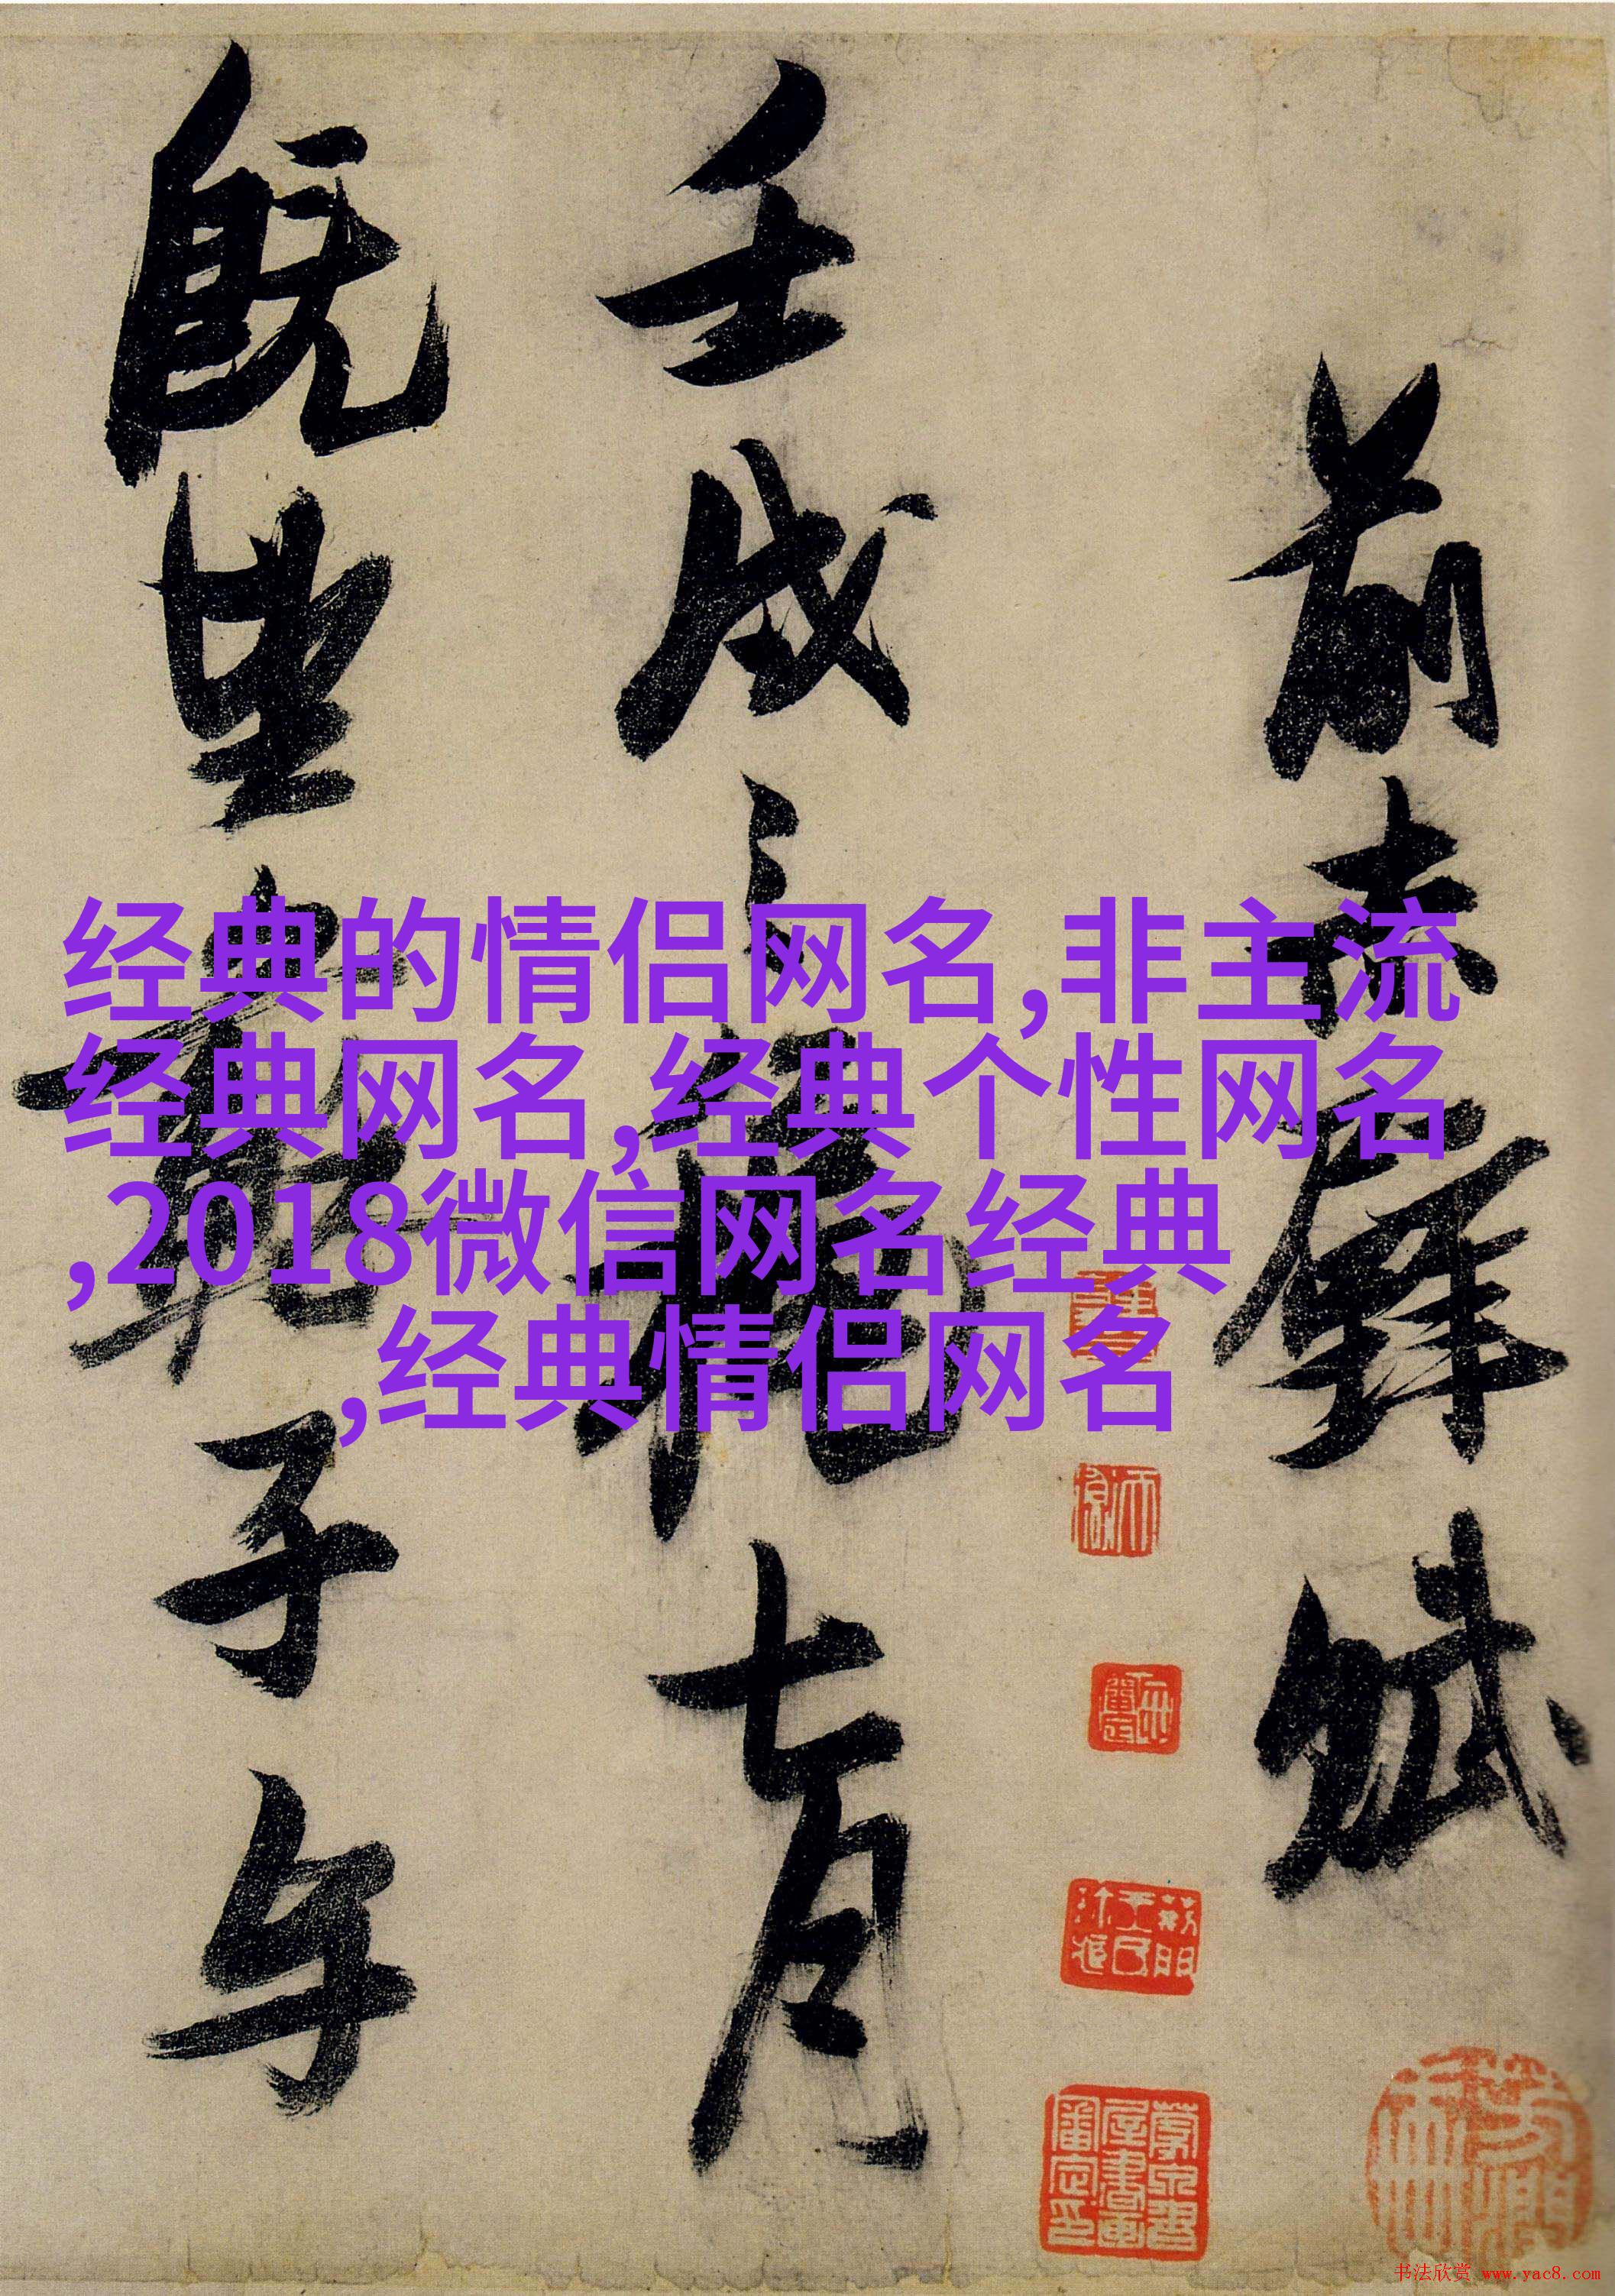 前赤壁賦
壬戌之秋七月
既望蘇子与
经典的情侣网名,非主流
经典网名,经典个性网名
,2018微信网名经典
,经典情侣网名
书法欣赏 www.yac8.com